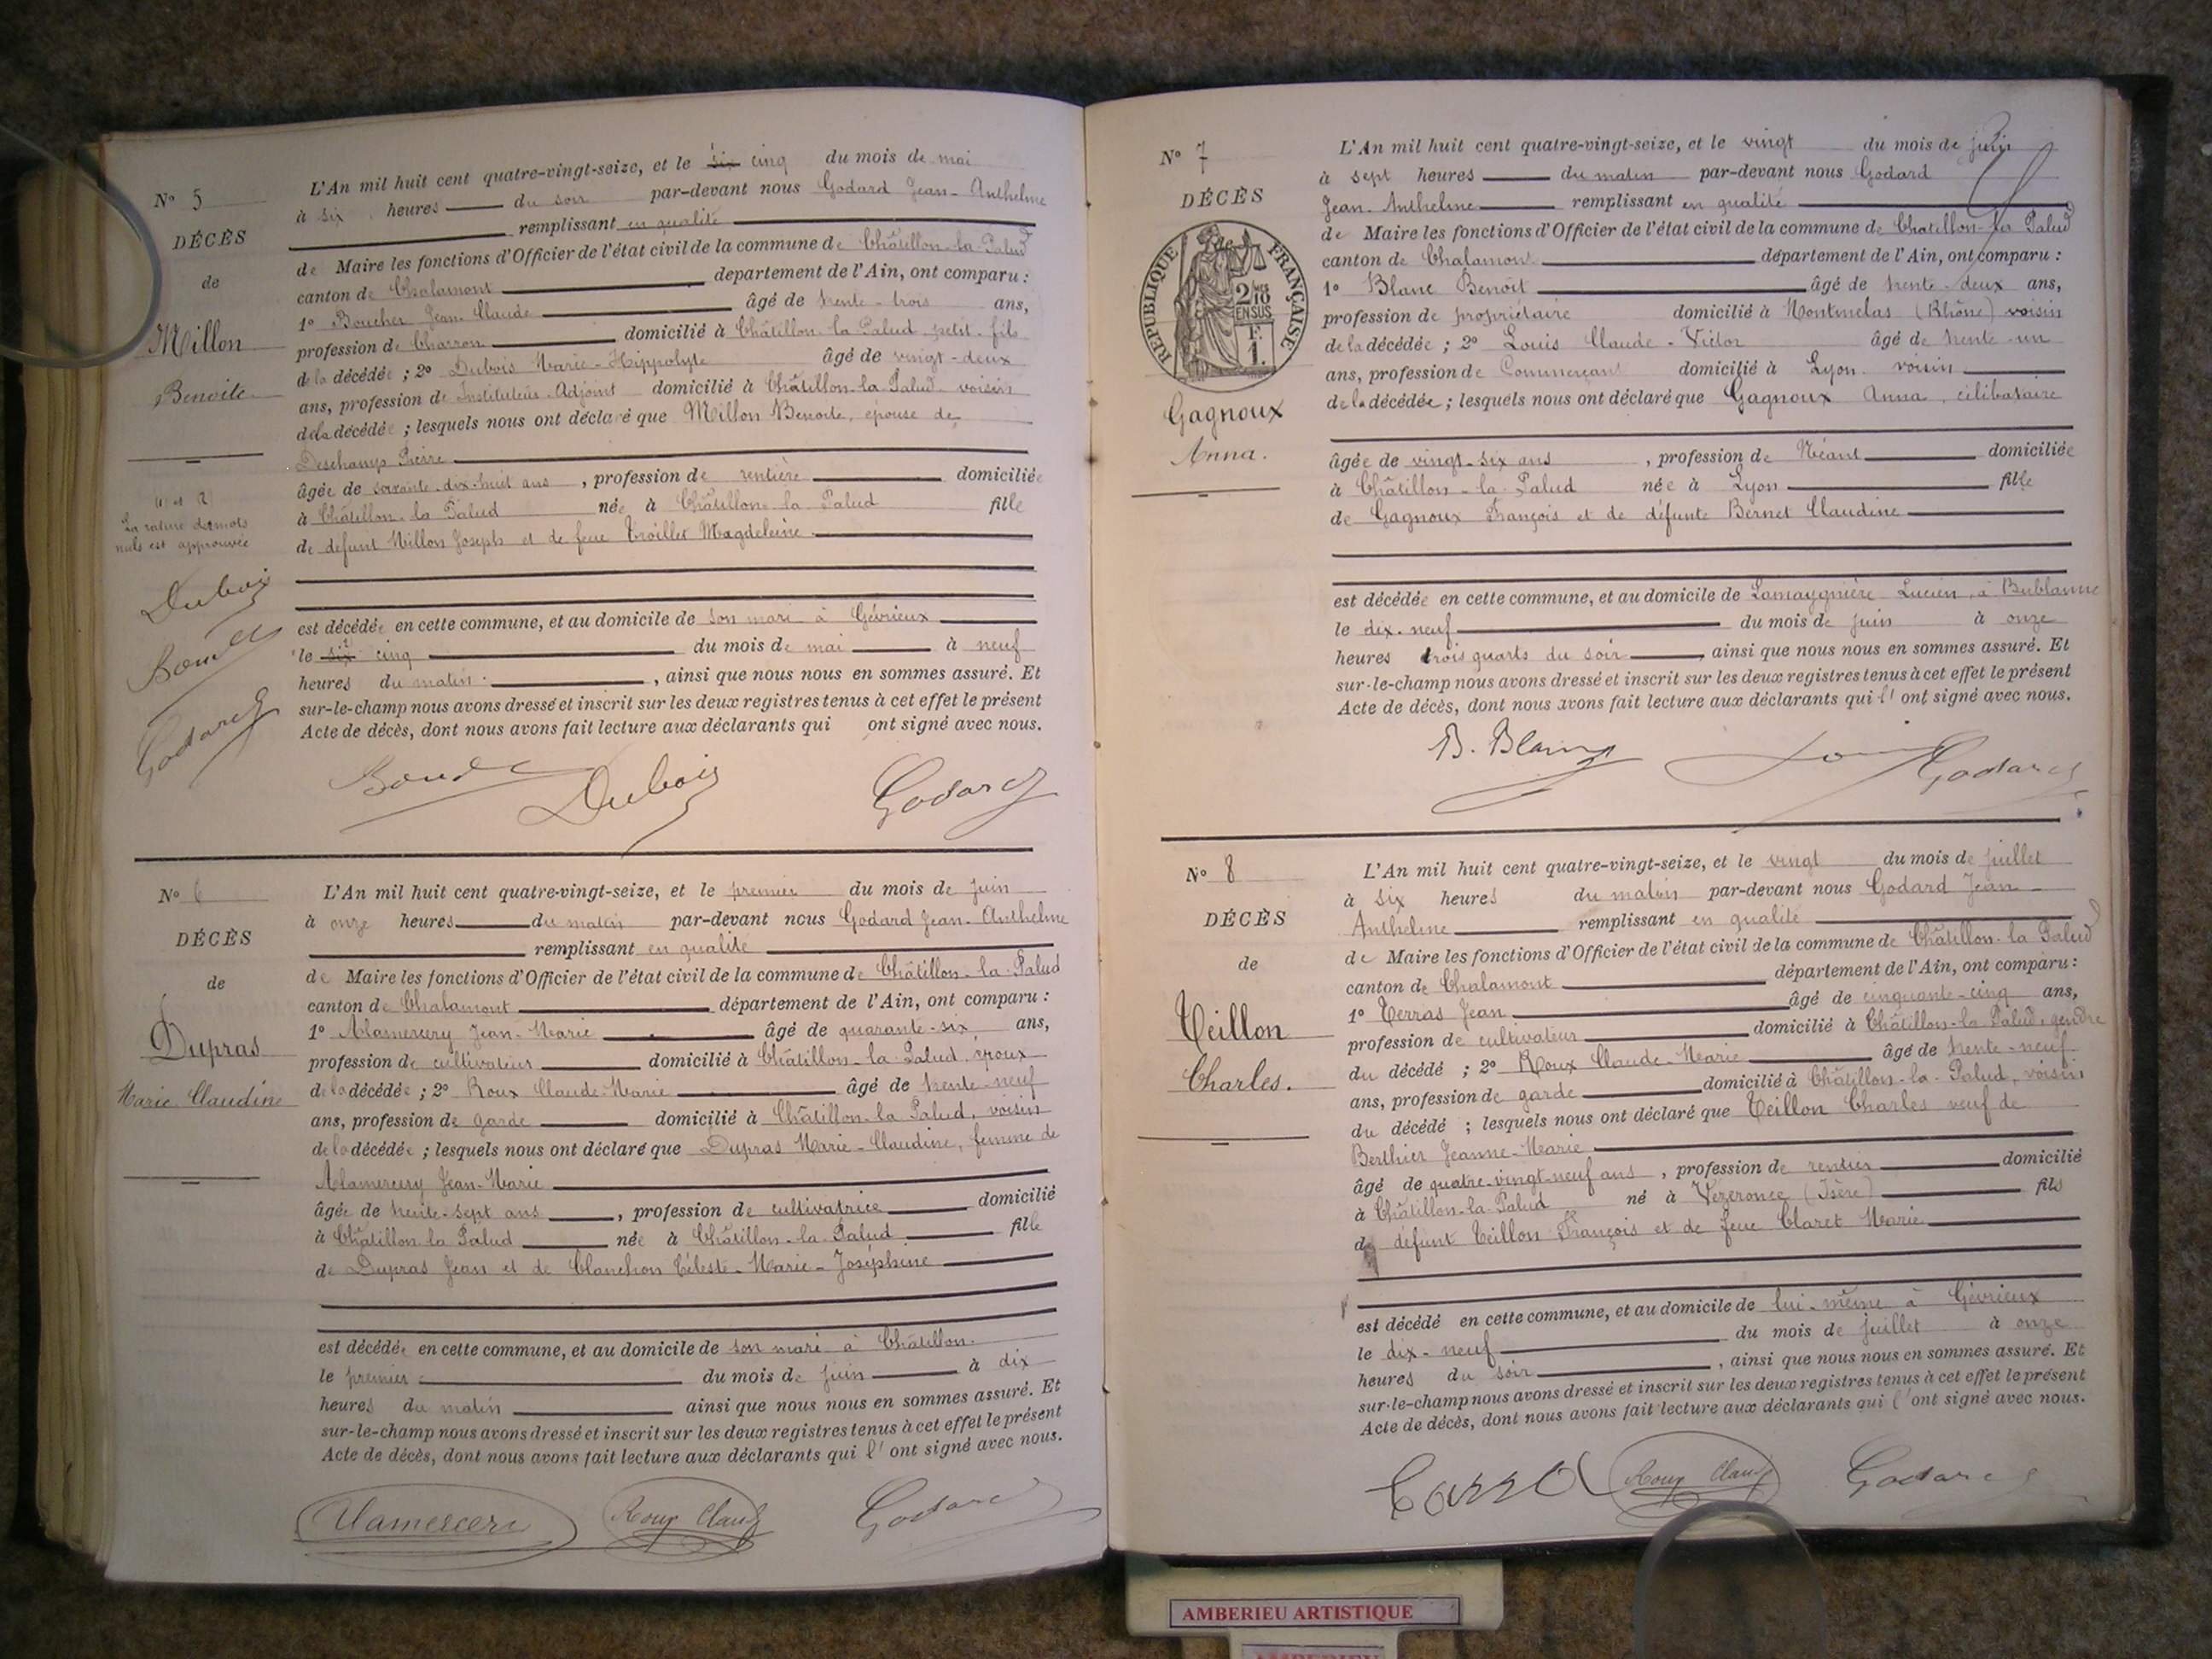 N° 5
DÉCÈS
de
Millon
Benoite
La rature de mots
nuls est approuvée
Dubois
Godard
L'An mil huit cent quatre-vingt-seize, et le six cinq du mois de mai
à six heures du soir par-devant nous Godard Jean-Anthelme
remplissant en qualité
de Maire les fonctions d'Officier de l'état civil de la commune de Châtillon-la-Palud
canton de Chalamont département de l'Ain, ont comparu :
1° Boucher Jean-Claude âgé de trente-trois ans,
profession de Charron domicilié à Châtillon-la-Palud, petit-fils
de la décédée ; 2° Dubois Marie-Hippolyte âgé de vingt-deux
ans, profession de Instituteur-Adjoint domicilié à Châtillon-la-Palud voisin
de la décédée ; lesquels nous ont déclaré que Millon Benoite, épouse de
Deschamps Pierre
âgée de soixante-dix-huit ans, profession de rentière domiciliée
à Châtillon-la-Palud née à Châtillon-la-Palud fille
de défunt Millon Joseph et de feue Troillet Magdeleine
est décédée en cette commune, et au domicile de son mari à Gévrieux
le six cinq du mois de mai à neuf
heures du matin, ainsi que nous nous en sommes assuré. Et
sur-le-champ nous avons dressé et inscrit sur les deux registres tenus à cet effet le présent
Acte de décès, dont nous avons fait lecture aux déclarants qui ont signé avec nous.
Dubois Godard
N° 6
DÉCÈS
de
Dupras
Marie Claudine
L'An mil huit cent quatre-vingt-seize, et le premier du mois de juin
à onze heures du matin par-devant nous Godard Jean-Anthelme
remplissant en qualité
de Maire les fonctions d'Officier de l'état civil de la commune de Châtillon-la-Palud
canton de Chalamont département de l'Ain, ont comparu :
1° Alamercery Jean-Marie âgé de quarante-six ans,
profession de cultivateur domicilié à Châtillon-la-Palud, époux
de la décédée ; 2° Roux Claude-Marie âgé de trente-neuf
ans, profession de garde domicilié à Châtillon-la-Palud, voisin
de la décédée ; lesquels nous ont déclaré que Dupras Marie-Claudine, femme de
Alamercery Jean-Marie
âgée de trente-sept ans, profession de cultivatrice domicilié
à Châtillon la Palud née à Châtillon-la-Palud fille
de Dupras Jean et de Blanchon Céleste-Marie-Joséphine
est décédée en cette commune, et au domicile de son mari à Châtillon
le premier du mois de juin à dix
heures du matin ainsi que nous nous en sommes assuré. Et
sur-le-champ nous avons dressé et inscrit sur les deux registres tenus à cet effet le présent
Acte de décès, dont nous avons fait lecture aux déclarants qui l'ont signé avec nous.
Alamercery Roux Claude Godard
N° 7
DÉCÈS
RÉPUBLIQUE FRANÇAISE
2/10
EN SUS
F.
1.
Gagnoux
Anna.
L'An mil huit cent quatre-vingt-seize, et le vingt du mois de juin
à sept heures du matin par-devant nous Godard
Jean-Anthelme remplissant en qualité
de Maire les fonctions d'Officier de l'état civil de la commune de Chatillon-la Palud
canton de Chalamont département de l'Ain, ont comparu :
1° Blanc Benoît âgé de trente-deux ans,
profession de propriétaire domicilié à Montmelas (Rhône) voisin
de la décédée ; 2° Louis Claude-Victor âgé de trente-un
ans, profession de Commerçant domicilié à Lyon voisin
de la décédée ; lesquels nous ont déclaré que Gagnoux Anna, célibataire
âgée de vingt-six ans, profession de Néant domiciliée
à Châtillon-la-Palud née à Lyon fille
de Gagnoux François et de défunte Bernet Claudine
est décédée en cette commune, et au domicile de Lucien, à Bublanne
le dix-neuf du mois de juin à onze
heures trois quarts du soir, ainsi que nous nous en sommes assuré. Et
sur-le-champ nous avons dressé et inscrit sur les deux registres tenus à cet effet le présent
Acte de décès, dont nous avons fait lecture aux déclarants qui l'ont signé avec nous.
B. Blanc Godard
N° 8
DÉCÈS
de
Teillon
Charles.
L'An mil huit cent quatre-vingt-seize, et le vingt du mois de juillet
à six heures du matin par-devant nous Godard Jean-
Anthelme remplissant en qualité
de Maire les fonctions d'Officier de l'état civil de la commune de Châtillon-la Palud
canton de Chalamont département de l'Ain, ont comparu :
1° Terras Jean âgé de cinquante-cinq ans,
profession de cultivateur domicilié à Châtillon-la Palud, gendre
du décédé ; 2° Roux Claude-Marie âgé de trente-neuf
ans, profession de garde domicilié à Châtillon-la-Palud, voisin
du décédé ; lesquels nous ont déclaré que Teillon Charles veuf de
Berthier Jeanne-Marie
âgé de quatre-vingt-neuf ans, profession de rentier domicilié
à Châtillon-la-Palud né à Vézeronce (Isère) fils
de défunt Teillon François et de feue Claret Marie
est décédé en cette commune, et au domicile de lui-même à Gévrieux
le dix-neuf du mois de juillet à onze
heures du soir, ainsi que nous nous en sommes assuré. Et
sur-le-champ nous avons dressé et inscrit sur les deux registres tenus à cet effet le présent
Acte de décès, dont nous avons fait lecture aux déclarants qui l'ont signé avec nous.
Roux Claude Godard
AMBERIEU ARTISTIQUE
AMBERIEU